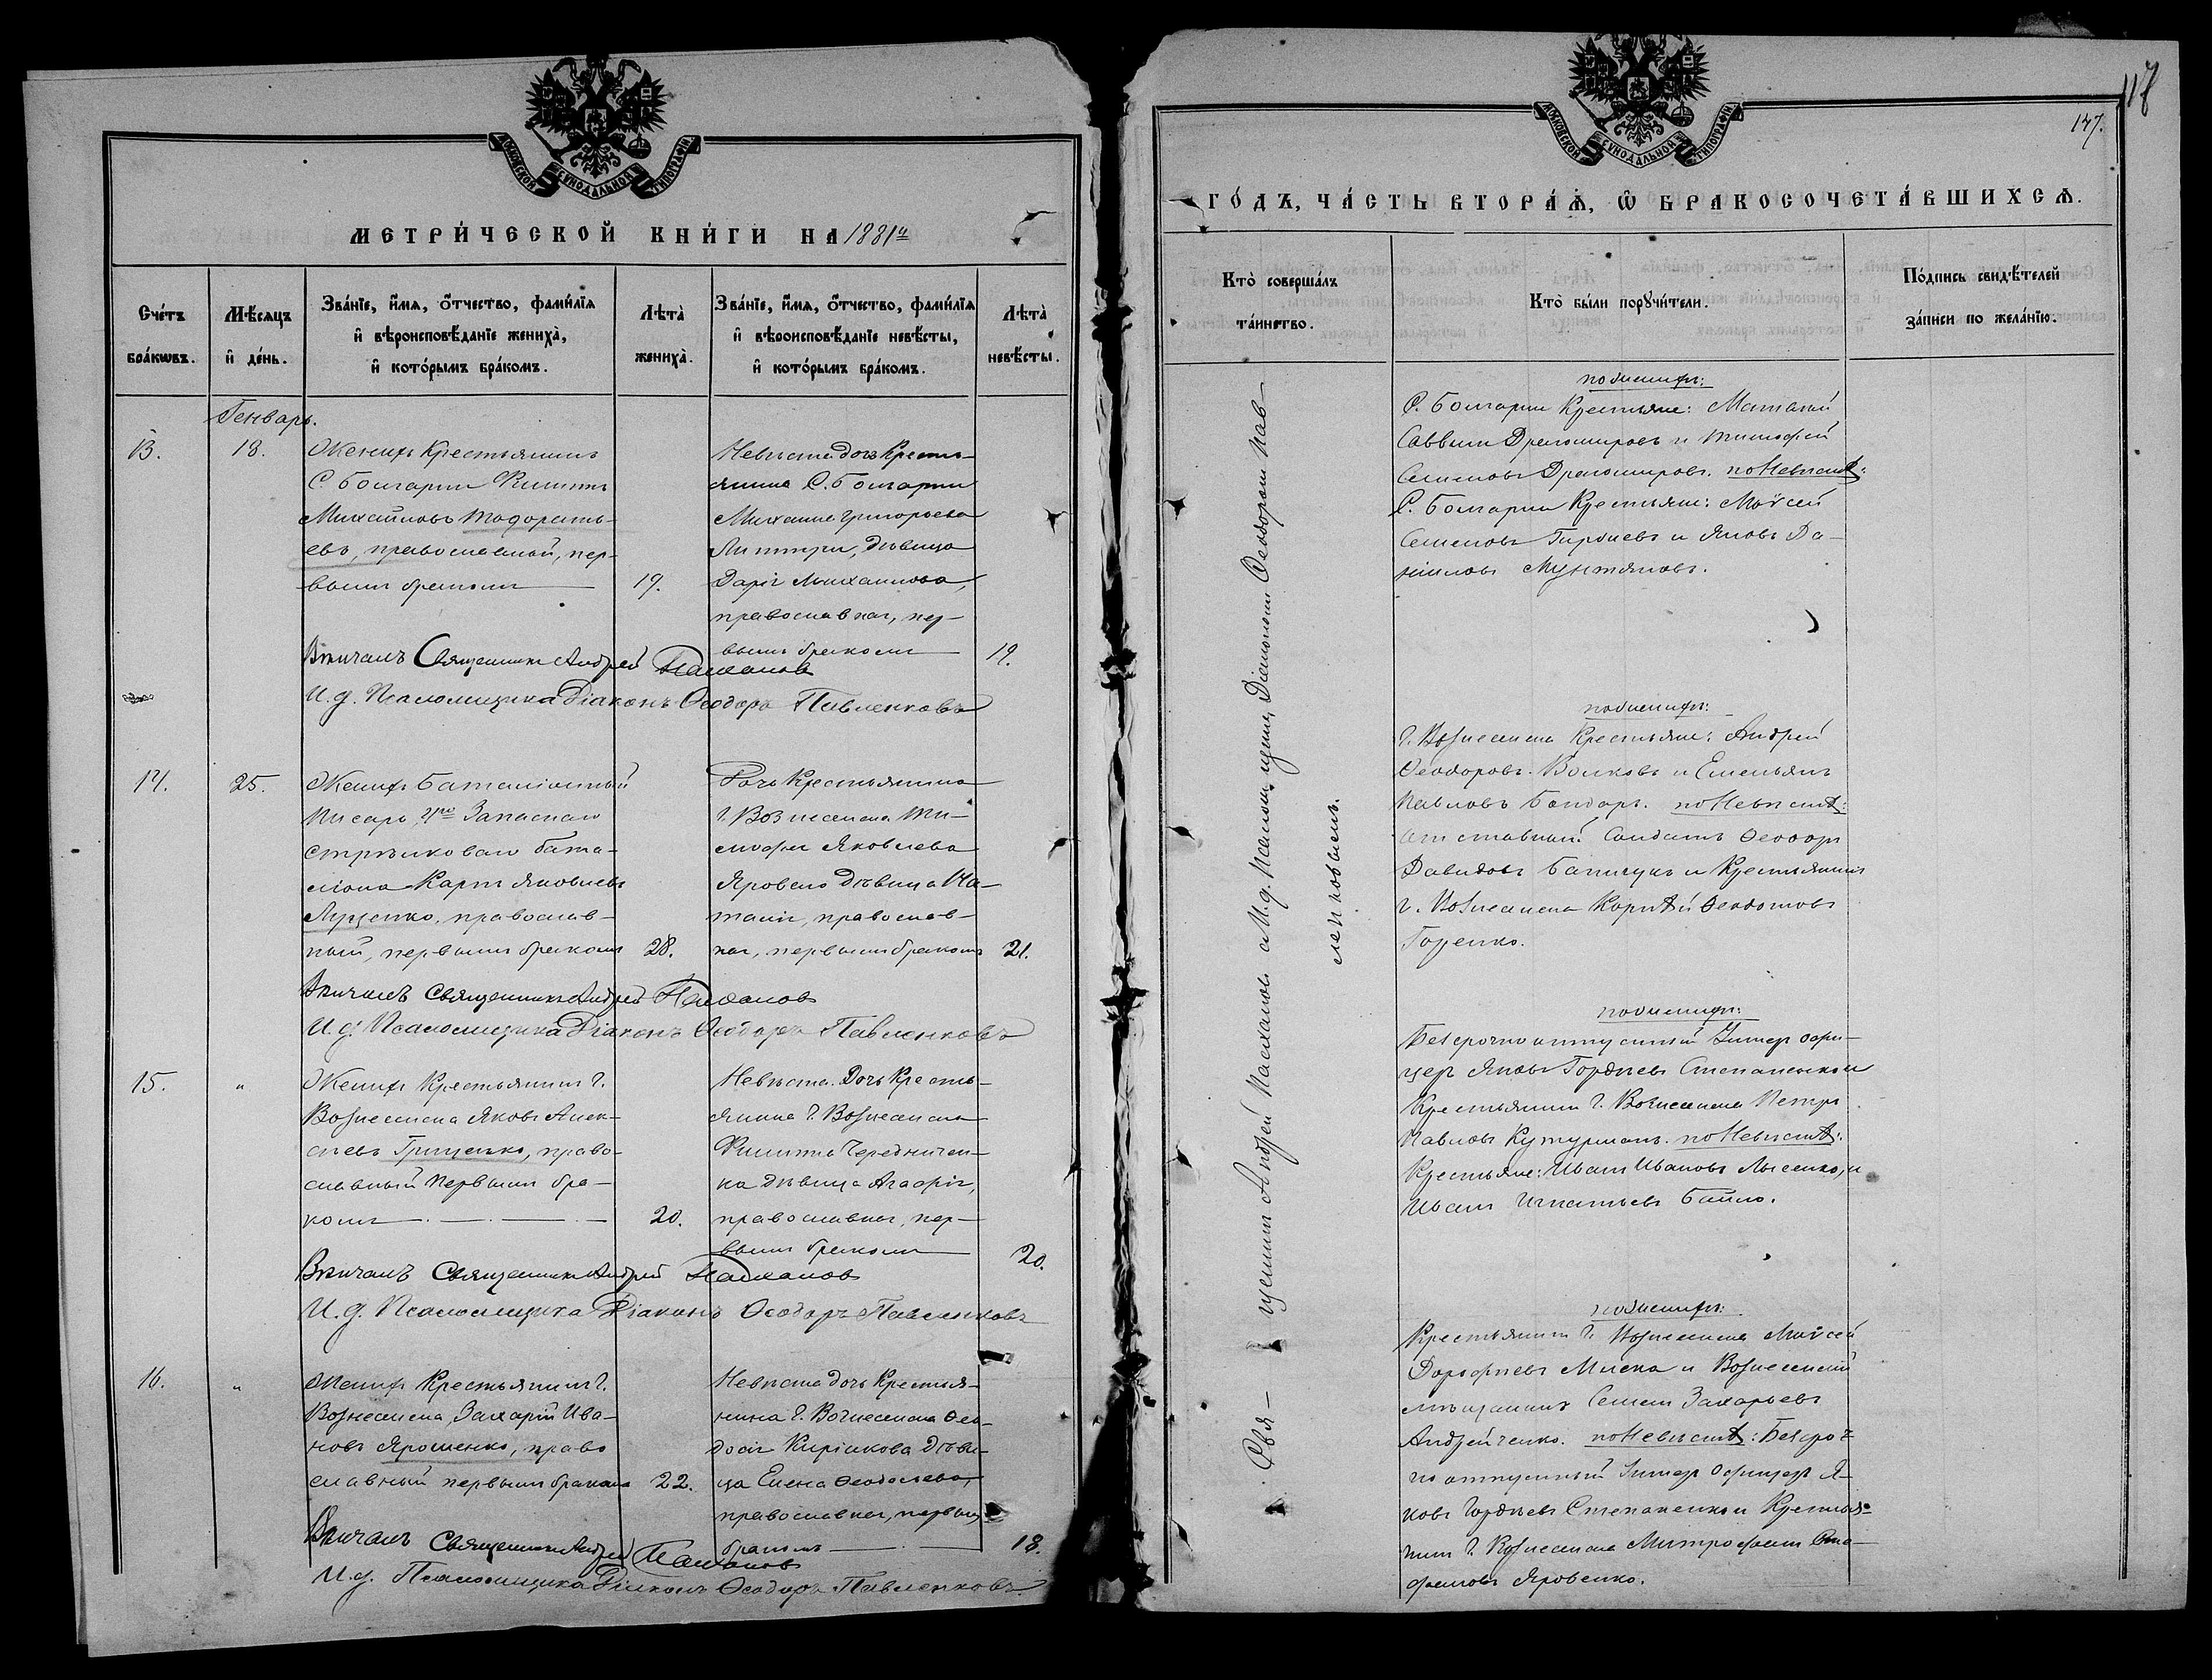 МОСКОВСКОЙ СѴНОДАЛЬНОЙ ТИПОГРАФІИ
МЕТРИ́ЧЕСКОЙ КНИ́ГИ НА 1881й
Сче́тъ бра́кѡвъ.
Мѣ́сяцъ и҆ де́нь.
Зва́нїе, и҆́мѧ, ѻ҆́тчество, фами́лїѧ
и҆ вѣроисповѣ́данїе женихà,
и҆ кото́рымъ бра́комъ.
Лѣ́та̀ женихà.
Зва́нїе, и҆́мѧ, ѻ҆́тчество, фами́лїѧ
и҆ вѣроисповѣ́данїе невѣ́сты,
и҆ кото́рымъ бра́комъ.
Лѣ́та̀ невѣ́сты.
Генварь.
13.
18.
Женихъ Крестьянинъ
С Болгарки Филиппъ
Михайловъ Тодорать-
евъ, православный, пер-
вымъ бракомъ
19.
Невѣста дочь Кресть-
янина С. Болгарки
Михаила Григорьева
дѣвица
Дарія Михаилова,
православная, пер-
вымъ бракомъ
19.
Вѣнчалъ Священникъ Андрей
И. д. Псаломщика Діаконъ Ѳеодоръ Павленковъ
14.
25.
Женихъ Баталіонный
Писарь 4го Запаснаго
Стрѣлковаго бата-
ліона Карпъ Яковлевъ
Луценко, православ-
ный, первымъ бракомъ
28.
Дочь Крестьянина
г. Вознесенска Ти-
мофея Яковлева
Яроваго дѣвица На-
талія, православ-
ная, первымъ бракомъ
21.
Вѣнчалъ Священникъ Андрей
И. д. Псаломщика Діаконъ Ѳеодоръ Павленковъ
15.
"
Женихъ Крестьянинъ г.
Вознесенска Яковъ Алек-
сѣевъ Гриценко, право-
славный первымъ бра-
комъ
20.
Невѣста Дочь Кресть-
янина г. Вознесенска
Филиппа Чередничен-
ка дѣвица Агафія,
православная, пер-
вымъ бракомъ
20.
Вѣнчалъ Священникъ Андрей
И. д. Псаломщика Діаконъ Ѳеодоръ Павленковъ
16.
"
Женихъ Крестьянинъ г.
Вознесенска, Захарій Ива-
новъ Ярошенко, право
славный первымъ бракомъ
22.
Невѣста дочь Крестья-
нина г. Вознесенска Ѳео-
досія Кирикова дѣви-
ца Елена Ѳеодосіева,
православная, первымъ
бракомъ
18.
Вѣнчалъ Священникъ Андрей
И. д. Псаломщика Діаконъ Ѳеодоръ Павленковъ
117
147.
МОСКОВСКОЙ СѴНОДАЛЬНОЙ ТИПОГРАФІИ
ГО́ДЪ, ЧА́СТЬ ВТОРА́Ѧ, Ѡ҆ БРАКОСОЧЕТА́ВШИХСѦ.
Кто̀ соверша́лъ
та́инство.
Кто̀ бы́ли порꙋчи́тели.
По́дпись свидѣ́телей
за́писи по жела́нїю.
Свя-
щенникъ Андрей И. д. Псаломщика Діакономъ Ѳеодоромъ Пав-
ленковымъ.
по женихѣ:
С. Болгарки Крестьяне: Матвей
Саввинъ Драгомировъ и Тимофей
Семеновъ Драгомировъ. по Невѣстѣ:
С. Болгарки Крестьяне: Моѵсей
Семеновъ и Яковъ Да-
ниловъ Мунтяновъ.
по женихѣ:
г. Вознесенска Крестьяне: Андрей
Ѳеодоровъ Волковъ и Емельянъ
Павловъ Бондарь. по Невѣстѣ:
Отставный Солдатъ Ѳеодоръ
Давидовъ и Крестьянинъ
г. Вознесенска Корнѣй Ѳеодотовъ
по женихѣ:
Безсрочноотпускный Унтеръ офи-
церъ Яковъ Гордѣевъ Степаненко и
Крестьянинъ г. Вознесенска Петръ
Павловъ Кутурманъ. по Невѣстѣ:
Крестьяне: Иванъ Ивановъ Лысенко, и
Иванъ Игнатьевъ Байло.
по женихѣ:
Крестьянинъ г. Вознесенска Моѵсей
Дорофѣевъ и Вознесенскій
мѣщанинъ Семенъ Захарьевъ
Андрейченко. по Невѣстѣ: Безсроч
но отпускный Унтеръ Офицеръ Я-
ковъ Гордѣевъ Степаненко и Крестья-
нинъ г. Вознесенска Митрофанъ
Яровенко.